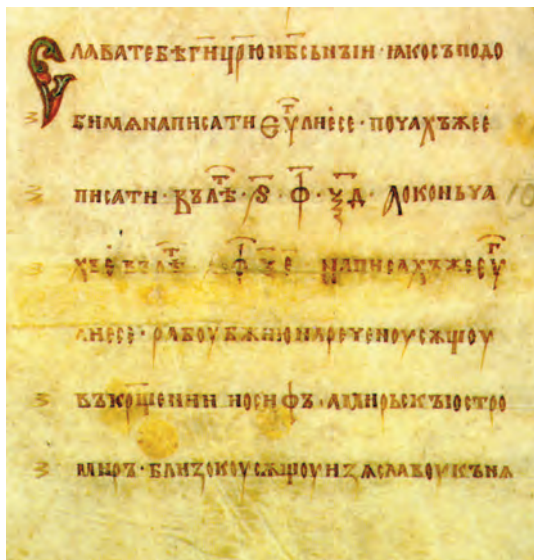 СЛАВАТЕБѢГ҃ИЦР҃ЮНБ҃СЬНЪІИ · ІАКОСЪПОДО
БИМѦНАПИСАТИЄУⷢ҇ЛИЕСЕ · ПОЧАХЪЖЕЕ
ПИСАТИ · ВЪЛѢⷮ · Ѕ҃ · Ф҃ · Ѯ҃Д · АОКОНЬЧА
ХЪЕВЪЛѢⷮ · Ф҃ Ѯ҃Е · НАПИСАХЪЖЕЕУⷢ҇
ЛИЕСЕ · РАБОУБЖ҃ИЮНАРЕЧЕНОУСѪЩОУ
ВЪКР҃ЩЕНИИ ИОСИФЪ · АМИРЬСКЪІОСТРО
МИРЪ · БЛИЗОКОУСѪЩОУИЗѦСЛАВОУКЪНѦ